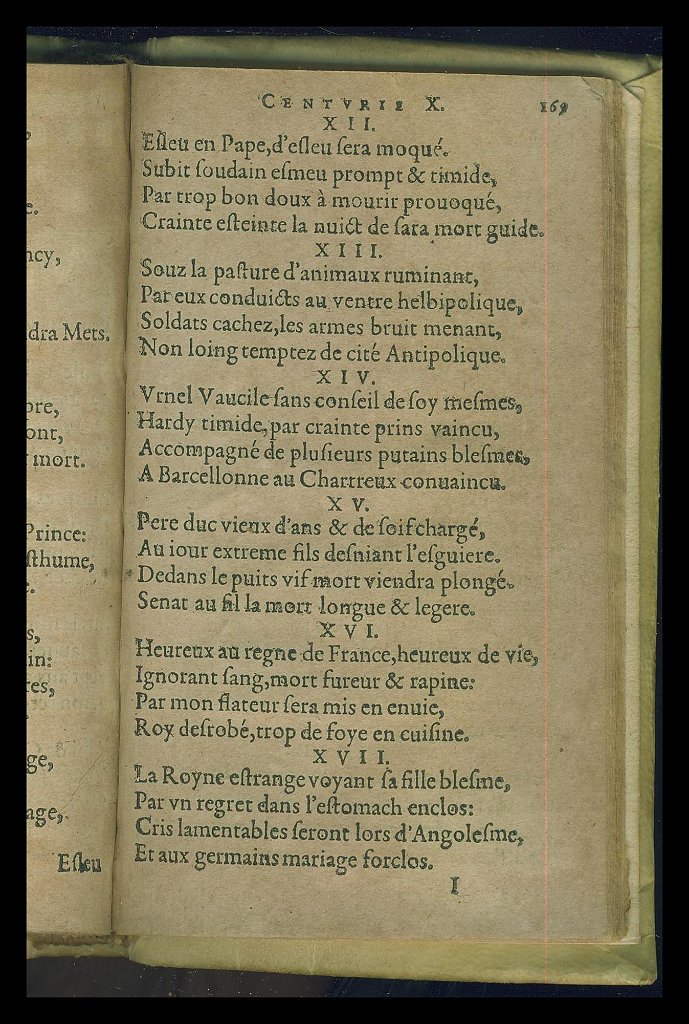 e.
ncy,
dra Mets.
bre,
ont,
mort.
Prince:
ſthume,
e.
s,
in:
res,
ge,
age,
Eſleu
CENTVRIE X. 169
XII.
Eſleu en Pape, d'eſleu ſera moqué.
Subit ſoudain eſmeu prompt & timide,
Par trop bon doux à mourir prouoqué,
Crainte eſteinte la nuict de ſara mort guide.
XIII.
Souz la paſture d'animaux ruminant,
Par eux conduicts au ventre helbipolique,
Soldats cachez, les armes bruit menant,
Non loing temptez de cité Antipolique.
XIV.
Vrnel Vaucile ſans conſeil de ſoy meſmes,
Hardy timide, par crainte prins vaincu,
Accompagné de pluſieurs putains bleſmes,
A Barcellonne au Chartreux conuaincu.
XV.
Pere duc vieux d'ans & de ſoif chargé,
Au iour extreme fils deſniant l'eſguiere.
Dedans le puits vif mort viendra plongé.
Senat au fil la mort longue & legere.
XVI.
Heureux au regne de France, heureux de vie,
Ignorant ſang, mort fureur & rapine:
Par mon flateur ſera mis en enuie,
Roy deſrobé, trop de foye en cuiſine.
XVII.
La Royne eſtrange voyant ſa fille bleſme,
Par vn regret dans l'eſtomach enclos:
Cris lamentables ſeront lors d'Angoleſme,
Et aux germains mariage forclos.
I